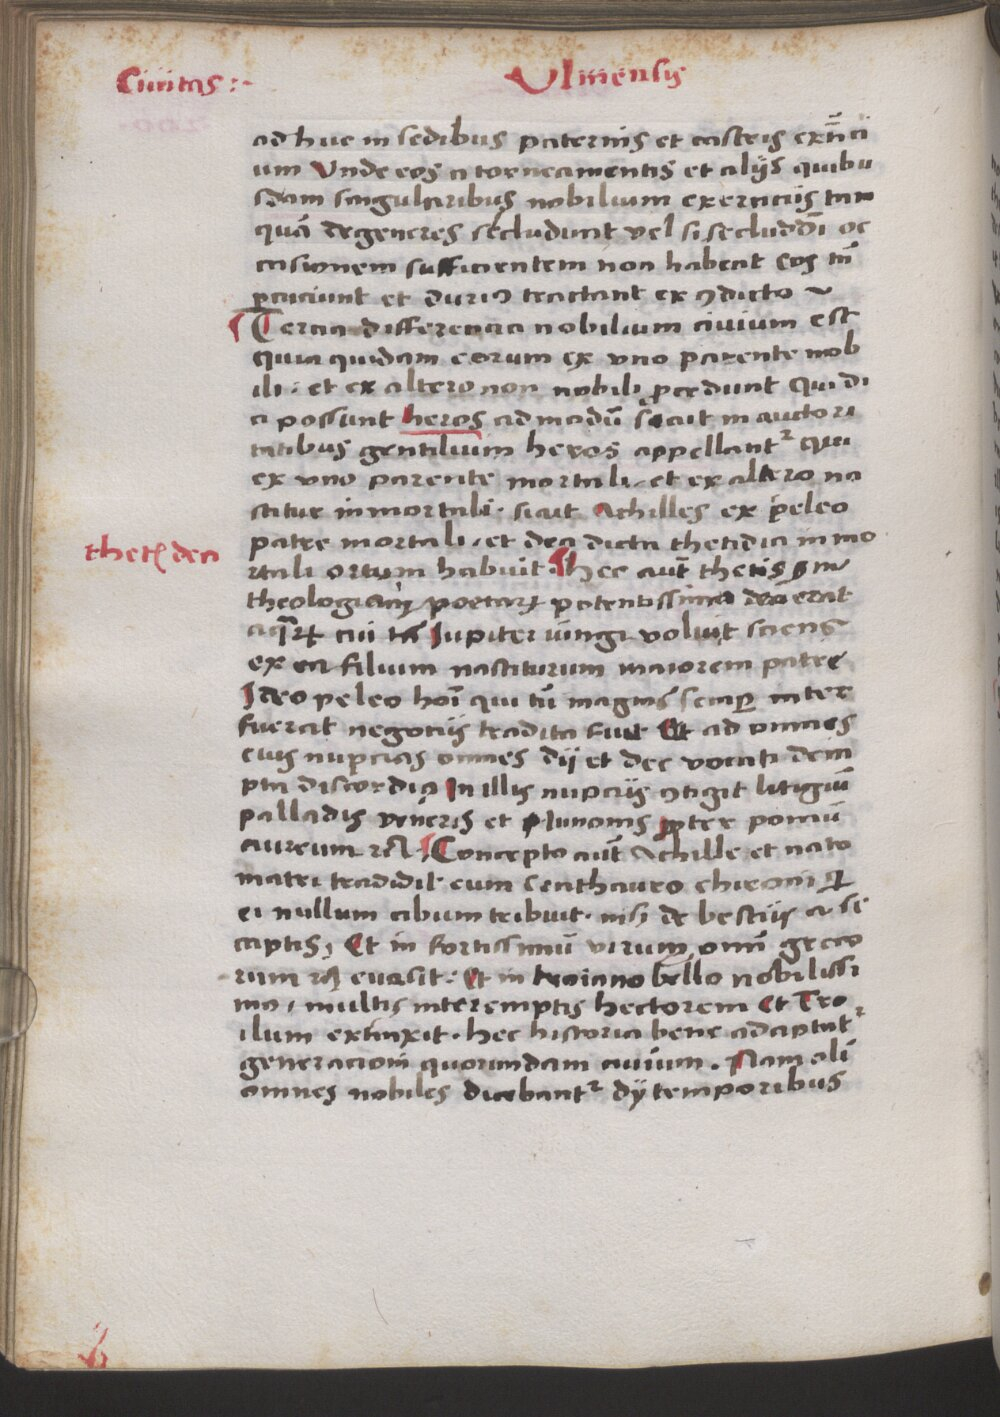 Ciuitas :-
Vlmensis
adhuc in sedibus paternis et castris exñci
um Vnde eos a torneamentis et alijs quibu
sdam singularibus nobilium exercicijs tan
quā degeneres secludunt vel si secludēdi oc
casionem sufficientem non habent Eos tñ
p̱cuciunt et duriꝰ tractant ex ꝯdicto ~
¶ Tercia differencia nobilium ciuium est
quia quidam eorum ex vno parente nob
ili · et ex altero non nobili ꝓcedunt Qui di
ci possunt heros ad modū sicut in auctori
tatibus gentilium heros appellantᷣ qui
ex vno parente mortali · et ex altero na
scitur inmortali · sicut Achilles ex peleo
thetꝭ dea
patre mortali · et dea dicta thetidia in mo
rtali ortum habuit · ¶ hec aut̄ thetis in
theologia poetaꝝ potentissima dea erat
aquaꝝ cui tn̄ Iupiter iungi voluit sciens
ex ea filium nasciturum maiorem patre
Ideo peleo hoi̅ qui tū magnis semꝑ inter
fuerat negocijs tradita fuit Et ad omnes
eius nupcias omnes dij et dee vocati dem
pta discordia In illis nupcijs ꝯtigit litigiū
palladis veneris et Iunonis ꝓpter pomū
aureum ⁊c̄ ¶ Concepto aut̄ Achille et nato
matri tradidit eum Centhauro chironi qͥ
ei nullum cibum tribuit · nisi de bestijs a se
captis, Et in fortissimū virum omī greco
rum evasit : Et in troiano bello nobilissi
mo , multis interemptis hectorem Et Tro
ilum extinxit · hec historia bene adaptatᷣ
generacioni quorundam ciuium . Nam oli̅
omnes nobiles dicebantᷣ dij temporibus